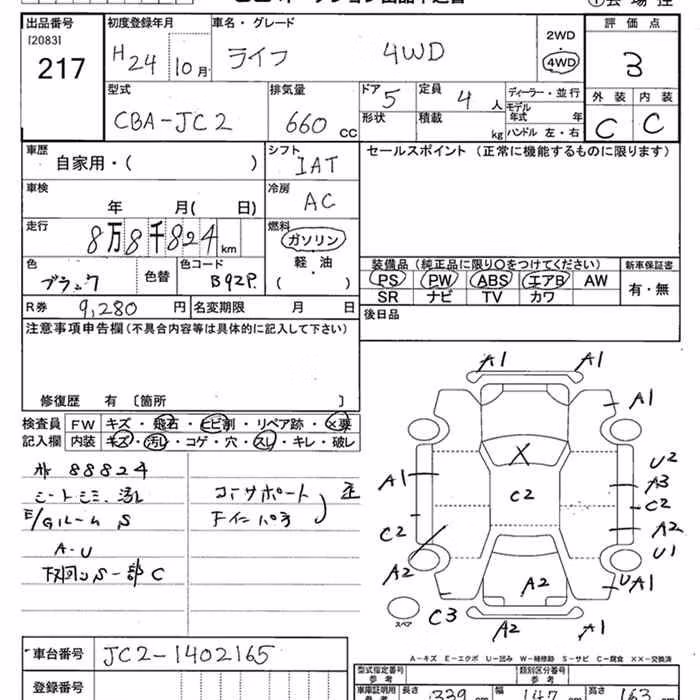 出品番号 初度登録年月 車名・グレード 評価点
[2083]
217 H24 10月 ライフ 4WD 2WD・4WD 3
型式 排気量 ドア 5 定員 4人 ディーラー・並行 外装 内装
CBA-JC2 660cc 形状 積載 kg モデル年式 年 C C
ハンドル 左・右
車歴 シフト セールスポイント(正常に機能するものに限ります)
自家用・( ) IAT
車検 冷房
年 月( 日) AC
走行 燃料
8万8千824km ガソリン
色 色替 色コード 軽・油 装備品(純正品に限り○をつけてください) 新車保証書
ブラック B92P ( ) PS PW ABS エアB AW 有・無
SR ナビ TV カワ
R券 9,280円 名変期限 月 日 後日品
注意事項申告欄(不具合内容等は具体的に記入して下さい)
修復歴 有 〔箇所 〕
検査員 FW キズ・飛石・ヒビ割・リペア跡・×要
記入欄 内装 キズ・汚レ・コゲ・穴・スレ・キレ・破レ
88824
S
A-U
S 一部C
A1 A1
A1
X
A1 C2 U2
A3
C2 C2
A2
A2 A2 U1
U A1
スペア C3 A2 A1
A-キズ E-エクボ U-凹み W-補修跡 S-サビ C-腐食 XX-交換済
車台番号 JC2-1402165
登録番号
型式指定番号 参考 類別区分番号 参考
車庫証明用 参考 長さ 339 幅 147 高さ 163